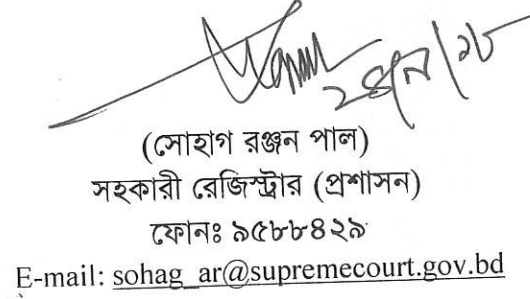 (সোহাগ রঞ্জন পাল)
সহকারী রেজিস্ট্রার (প্রশাসন)
ফোনঃ ৯৫৮৮৪২৯
E-mail: sohag_ar@supremecourt.gov.bd